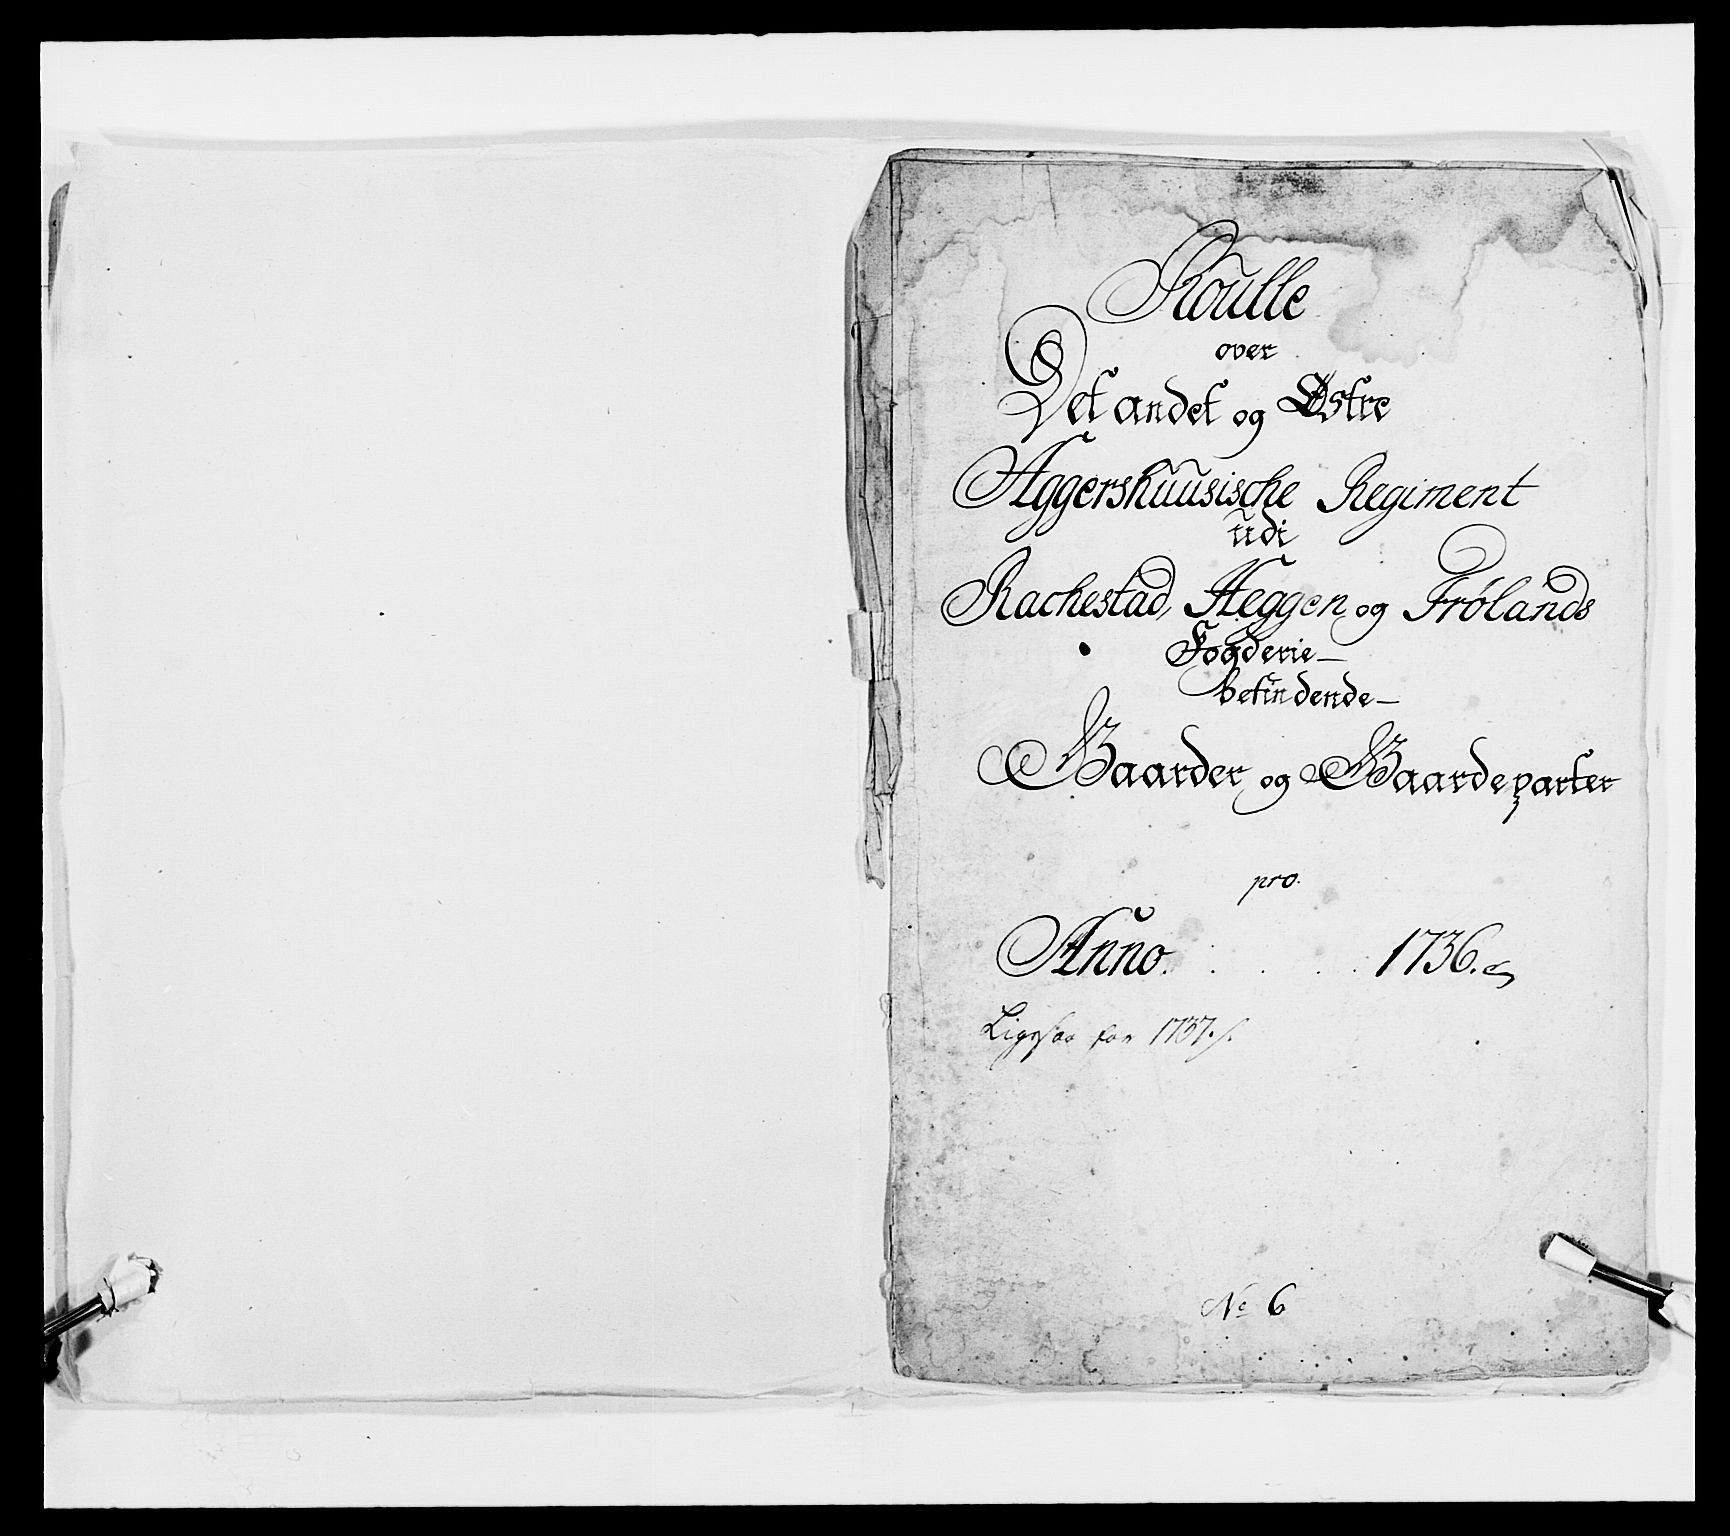 Roulle
over
Det andet og Østre
Aggershuusische Regiment
udi
Rachestad, Heggen og Frølands
Fogderie—
befindende—
Gaarder og Gaardeparter
pro.
Anno. . . . . 1736.
Ligesaa for 1737./.
No 6